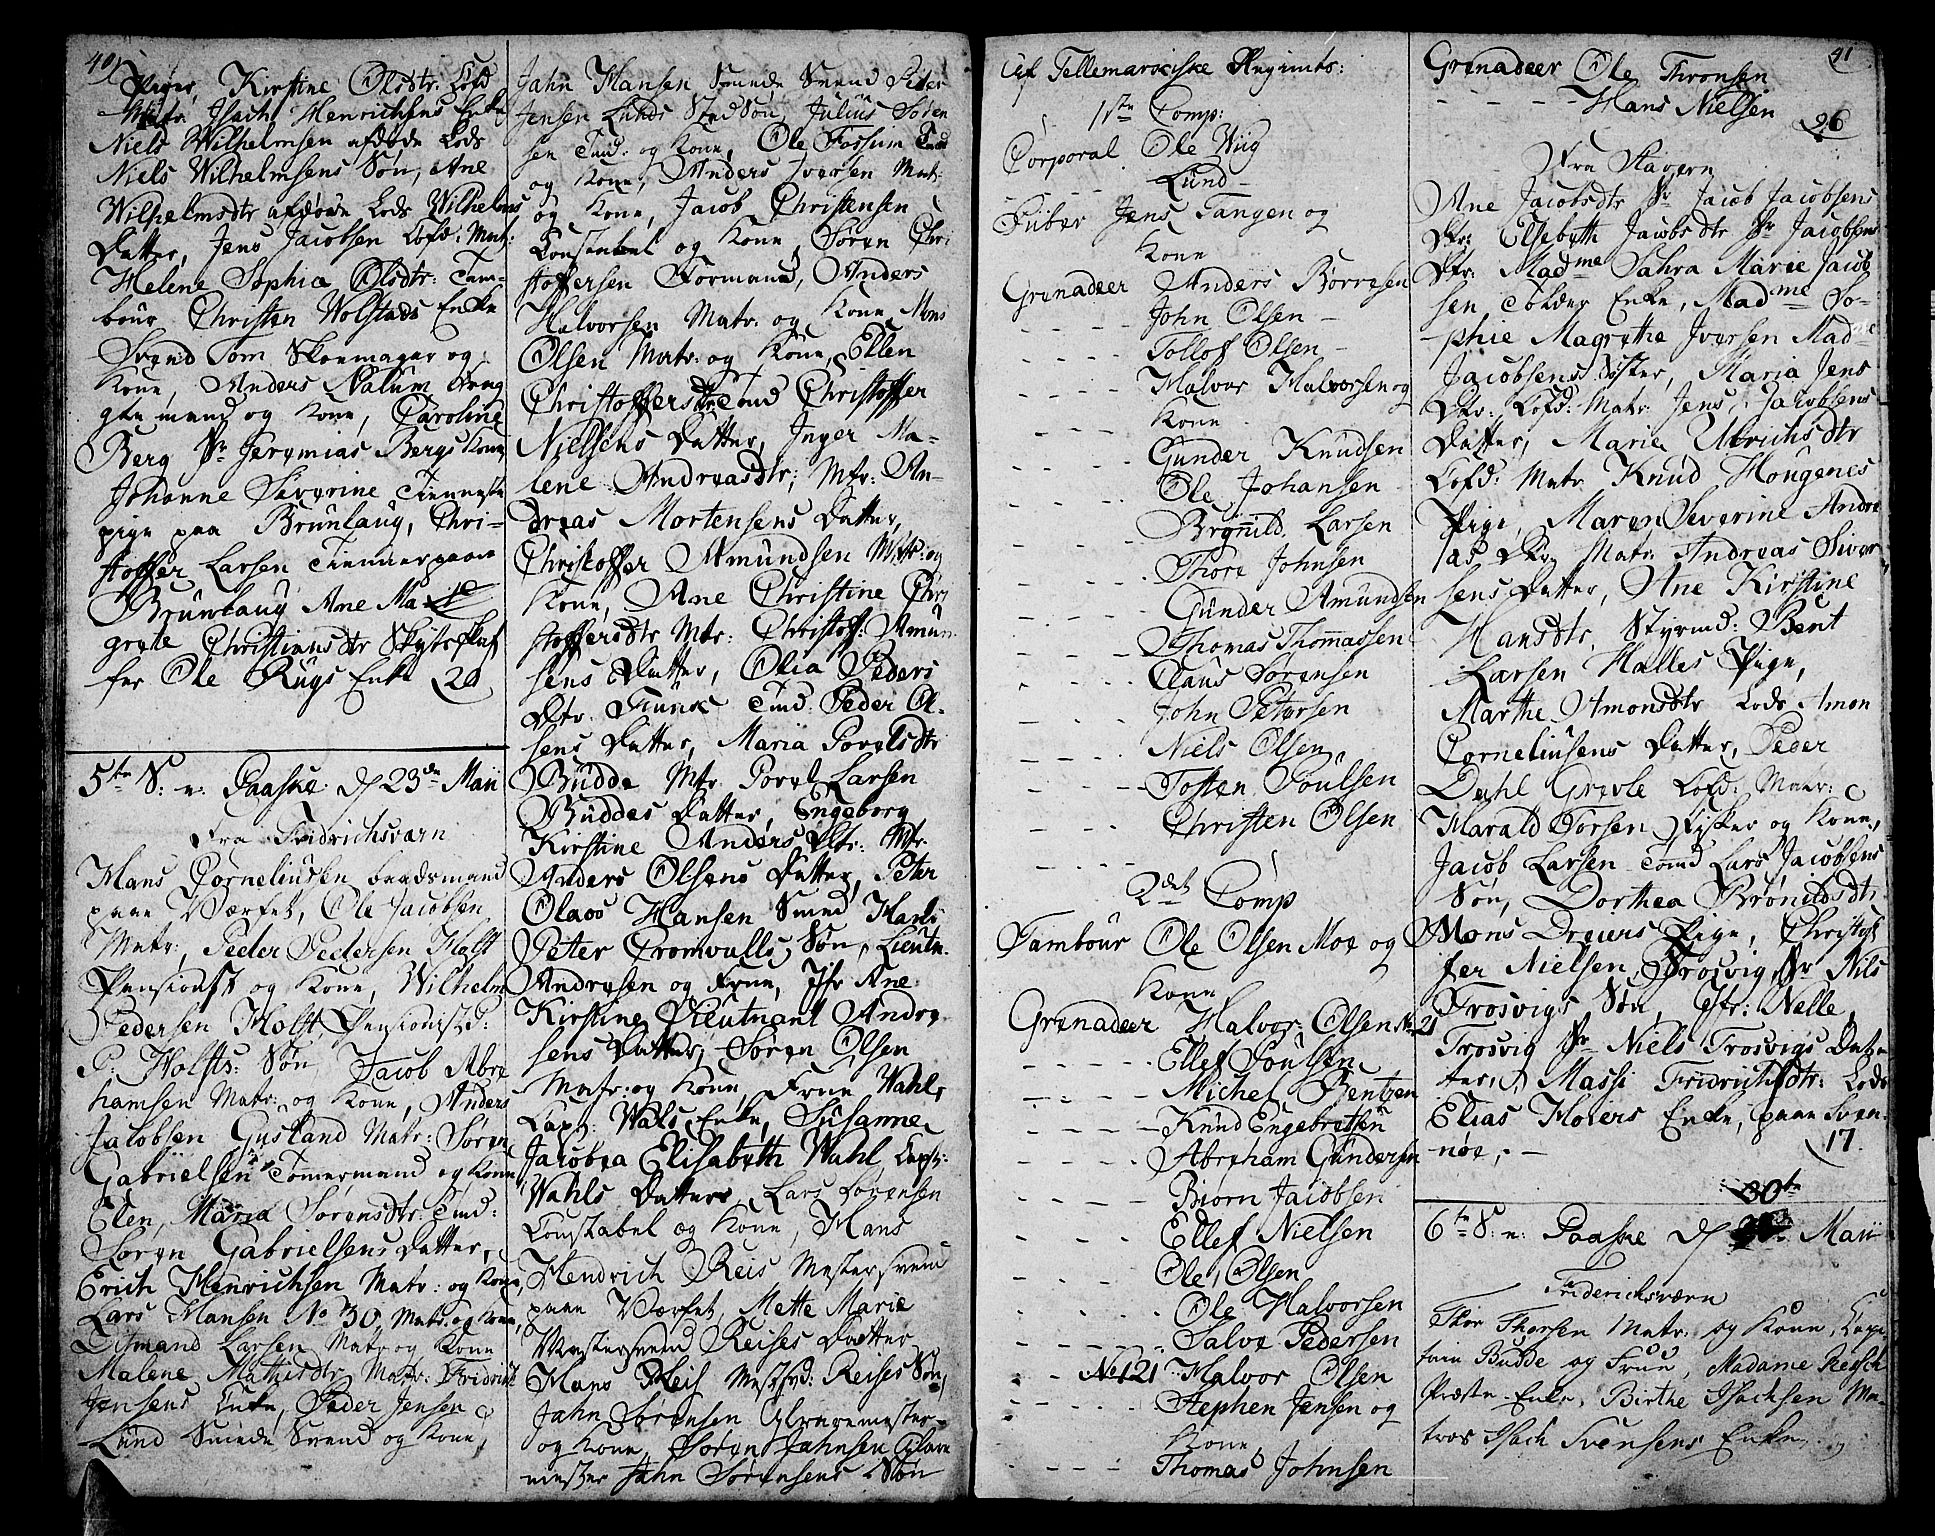 40
Piger, Kirstine Olsdtr: Lofd
Matr. Isach Henrichsens Enke
Niels Wilhelmsen afdøde Lods
Niels Wilhelmsens Søn, Ane
Wilhelmsdtr afdøde Lods Wilhelms
Datter, Jens Jacobsen Lofd: Matr:
Helene Sophia Olsdtr: Tam-
bour Christen Wolstads Enke
Svend Tom Skoemager og
Kone, Anders Nalum
mand og Kone, Caroline
Berg Sr Jeremias Bergs Kone,
Johanne Severine Tienneste
pige paa Brunlaug, Chri-
stoffer Larsen Tienner paa
Brunlaug Ane Ma
grete Christiansdtr Skydsskaf
fer Ole Rugs Enke 20
5te S: n: Paaske d 23de Maii
Fra Fridrichsværn
Hans Corneliusen baadsmand
paa Værfet, Ole Jacobsen
Matr:, Peder Pedersen Holst
Pensionist og Kone, Wilhelm
Pedersen Holst Pensionist:
P: Holsts: Søn, Jacob Abra
hamsen Matr: og Kone, Anders
Jacobsen Gusland Matr: Søren
Gabrielsen Tømermand og Kone
Elen, Maria Sørensdtr: Tmd:
Søren Gabrielsens Datter,
Erich Henrichsen Matr: og Kone,
Lars Hansen No 30 Matr: og Kone,
Ditmand Larsen Matr og Kone
Malene Mathisdtr Matr: Fridrich
Jensens Enke, Peder Jensen
Lund Smede Svend og Kone,
Jahn Hansen Smede Svend Peder
Jensen Lunds Sted Søn, Julius Søren
sen Tmd: og Kone, Ole Fossum Tmd
og Kone, Anders Iversen Matr:
og Kone, Jacob Christensen
Constabel og Kone, Søren Chri
stoffersen Formand, Anders
Halvorsen Matr: og Kone, Mons
Olsen Matr: og Kone, Ellen
Christoffersdtr Tmd Christoffer
Nielsens Datter, Inger Ma-
lene Andreasdtr; Mtr: An-
dreas Mortensens Datter,
Christoffer Amundsen Mtr: og
Kone, Ane Christine Chri
stoffersdtr Mtr: Christoff: Amun
sens Datter, Olia Peders
Dtr: Funk Tmd: Peder Ol-
sens Datter, Maria Porelsdtr
Budde Mtr Porel Larsen
Buddes Datter, Engeborg
Kirstine Anders Dtr: Mtr.
Anders Olsens Datter, Peter
Olaus Hansen Smed Hans
Peter Cromvalls Søn, Lieutn.
Andresen og Frue, Jfr Ane
Kirstine Lieutnant Andre
sens Datter, Søren Olsen
Matr: og Kone, Frue Wahls
Capt: Wals Enke, Susanne
Jacobea Elisabeth Wahl, Capt:
Wahls Datter, Lars Sørensen
Constabel og Kone, Hans
Hendrich Reis, Mestersvend
paa Værfet, Mette Marie
Mestersvend Reises Datter
Hans Reis Mestsvd: Reises Søn,
Jahn Sørensen Glarmester
og Kone, Søren Jahnsen Glar
mester Jahn Sørensens Søn
Af Tellemarkiske Regimts:
1ste Comp:
Corporal Ole Wiig
Lund
Piber Jens Tangen og
Kone
Grenadeer Anders Børresen
John Olsen
Tollof Olsen
Halvor Halvorsen og
Kone
Gunder Knudsen
Ole Johansen
Brynild Larsen
Thore Johnsen
Gunder Amundsen
Thomas Thomassen
Claus Sørensen
John Petersen
Niels Olsen
Tosten Poulsen
Christen Olsen
2det Comp
Tambour Ole Olsen Moe og
Kone
Grenadeer Halvor Olsen No 21
Ellef Poulsen
Michel Bentzen
Knud Engebretsen
Abraham Gundersen
Biørn Jacobsen
Ellef Nielsen
Ole Olsen
Ole Halvorsen
Salve Pedersen
No 121 Halvor Olsen
Stephen Jensen og
Kone
Thomas Johnsen
41
Grenadeer Ole Thronsen
Hans Nielsen
26
Fra Stavern
Ane Jacobsdtr Sr Jacob Jacobsens
Dtr: Elsebeth Jacobsdtr Sr Jacobsens
Dtr: Madme Sahra Marie Jacob
sen Tolder Enke, Madme So-
phie Magrethe Iversen Madme
Jacobsens Søster, Maria Jens
Dtr: Lofd: Matr: Jens Jacobsens
Datter, Maria Ulrichsdtr
Lofd: Matr Knud Hougenes
Pige, Maren Severine Andre
as Dtr Matr: Andreas Siver
sens Datter, Ane Kirstine
Hansdtr, Styrmd: Bent
Larsen Halles Pige,
Marthe Amonsdtr Lods Amon
Corneliusens Datter, Peder
Dahl Grevle Lofd: Matr:
Harald Torsen Fisker og Kone,
Jacob Larsen Tmd Lars Jacobsens
Søn, Dorthea Brønildsdtr
Mons Dreiers Pige, Christof
fer Nielsen Trosvig Sr Nils
Trosvigs Søn, Jfr: Nelle
Trosvig Sr Niels Trosvigs Dat-
ter, Massi Fridrichsdtr: Lods
Elias Hoiers Enke, paa Sven
nøe, 17
30te
6te S: n: Paaske d Maii
Friderichsværn
Thor Thorsen Matr: og Kone, Cap-
tain Budde og Frue, Madame Resch
Præste Enke, Birthe Isachsen Ma-
tros Isach Svensens Enke,